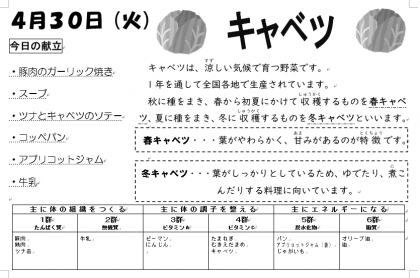 4月30日（火）
キャベツ
今日の献立
・豚肉のガーリック焼き
・スープ
・ツナとキャベツのソテー
・コッペパン
・アプリコットジャム
・牛乳
キャベツは、涼しい気候で育つ野菜です。
1年を通して全国各地で生産されています。
秋に種をまき、春から初夏にかけて収穫するものを春キャベ
ツ、夏に種をまき、冬に収穫するものを冬キャベツといいます。
春キャベツ・・・葉がやわらかく、甘みがあるのが特徴です。
冬キャベツ・・・葉がしっかりとしているため、ゆでたり、煮こ
んだりする料理に向いています。
主に体の組織をつくる 主に体の調子を整える 主にエネルギーになる
1群 2群 3群 4群 5群 6群
たんぱく質 無機質 ビタミンA ビタミンC 炭水化物 脂質
豚肉、 牛乳、 ピーマン、 たまねぎ、 パン、 オリーブ油、
ツナ、 にんじん、 むきえだまめ、 アプリコットジャム（袋）、 油、
キャベツ、 じゃがいも、